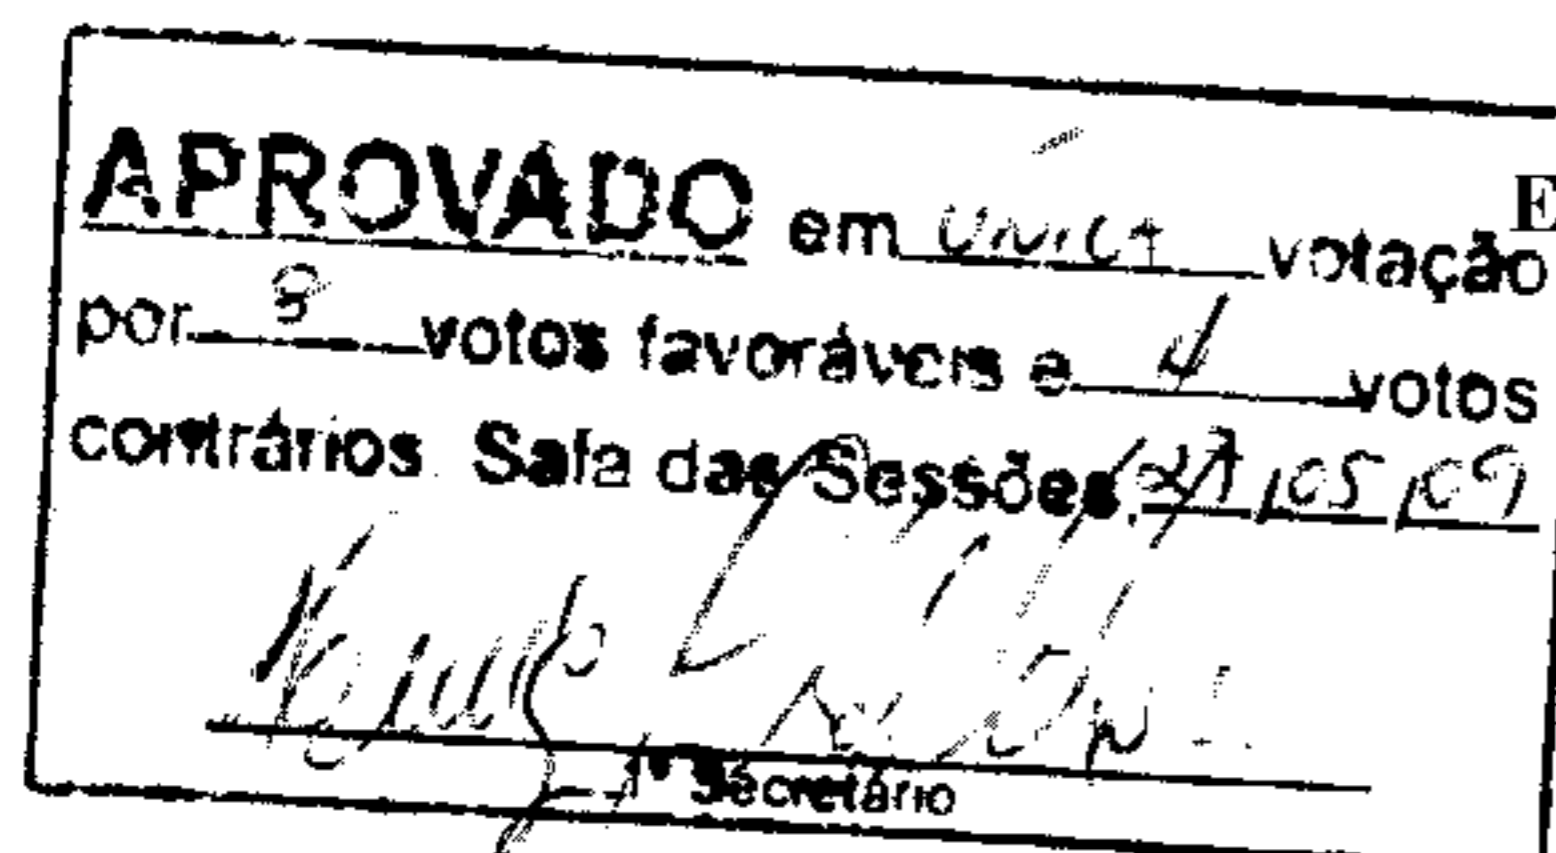 APROVADO em UNICA votação
E
por 8 votos favoráveis e 4 votos
contrários. Sala das Sessões, 27/05/09
1º Secretário